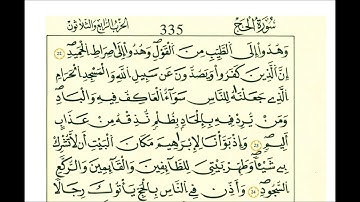 سُورَةُ الحَجِّ 335 الحِزْبُ الرَّابِعُ وَالثَّلَاثُونَ
وَهُدُوٓاْ إِلَى اَ۬لطَّيِّبِ مِنَ اَ۬لْقَوْلِ وَهُدُوٓاْ إِلَىٰ صِرَٰطِ اِ۬لْحَمِيدِ
إِنَّ اَ۬لذِينَ كَفَرُواْ وَيَصُدُّونَ عَن سَبِيلِ اِ۬للَّهِ وَالْمَسْجِدِ اِ۬لْحَرَامِ
اِ۬لذِے جَعَلْنَٰهُ لِلنَّاسِ سَوَآءٌ اِ۬لْعَٰكِفُ فِيهِ وَالْبَادِۦ
وَمَنْ يُّرِدْ فِيهِ بِإِلْحَادِۢ بِظُلْمٖ نُّذِقْهُ مِنْ عَذَابٍ
اَلِيمٖ وَإِذْ بَوَّأْنَا لِإِبْرَٰهِيمَ مَكَانَ اَ۬لْبَيْتِ أَن لَّا تُشْرِكْ
بِے شَيْـٔاٗ وَطَهِّرْ بَيْتِيَ لِلطَّآئِفِينَ وَالْقَآئِمِينَ وَالرُّكَّعِ
اِ۬لسُّجُودِ وَأَذِّن فِے اِ۬لنَّاسِ بِالْحَجِّ يَاتُوكَ رِجَالاٗ